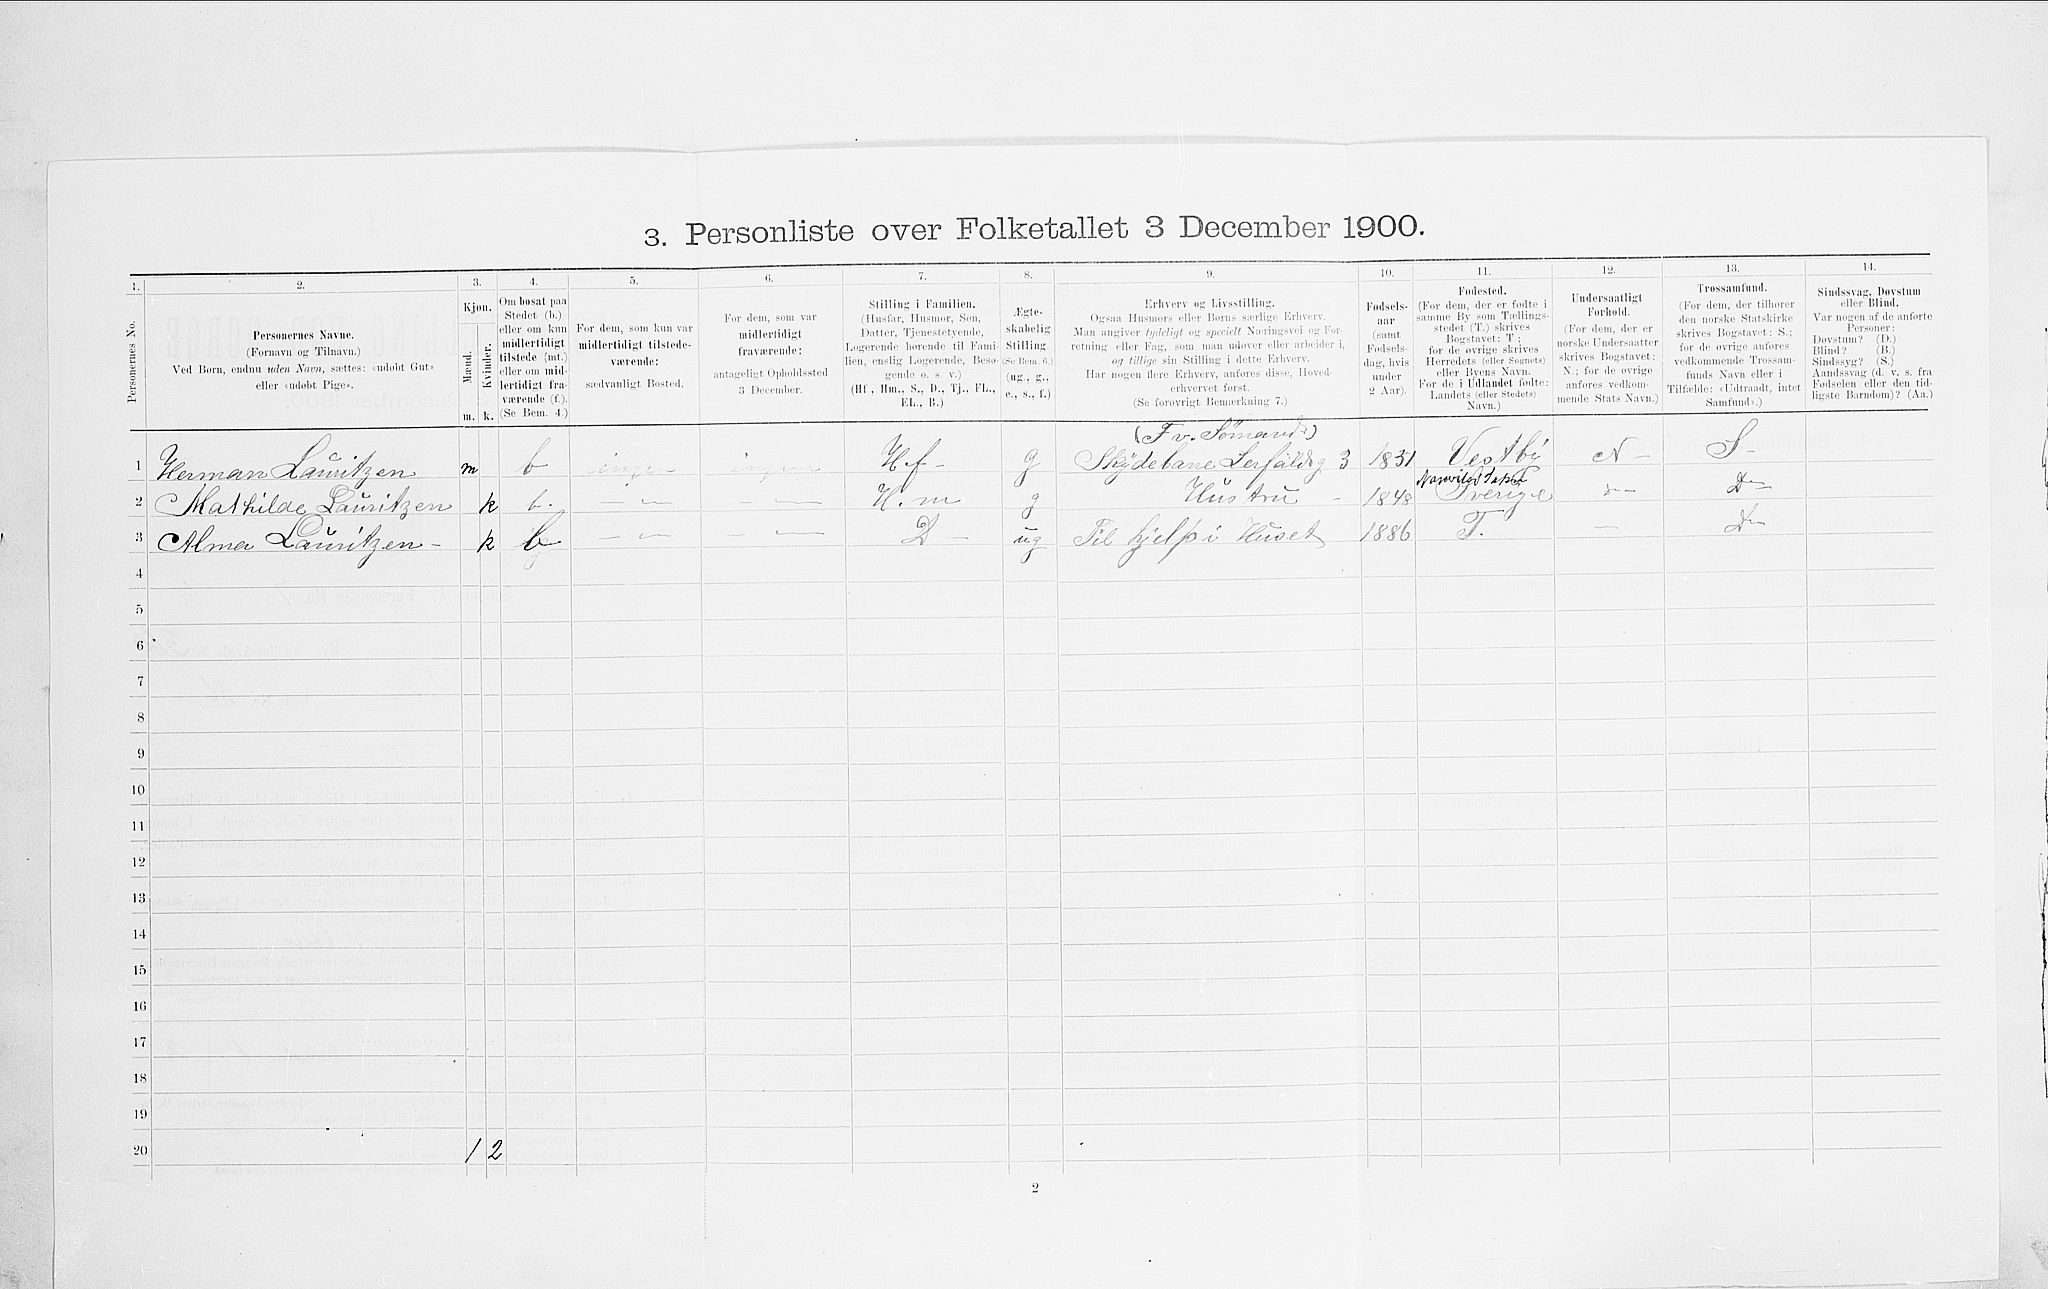 3. Personliste over Folketallet 3 December 1900.
1. 2. 3. 4. 5. 6. 7. 8. 9. 10. 11. 12. 13. 14.
Personernes No.
Personernes Navne.
(Fornavn og Tilnavn.)
Ved Børn, endnu uden Navn, sættes: «udøbt Gut»
eller «udøbt Pige».
Kjøn.
Mænd.
Kvinder.
m. k.
Om bosat paa
Stedet (b.)
eller om kun
midlertidigt
tilstede (mt.)
eller om mid-
lertidigt fra-
værende (f.).
(Se Bem. 4.)
For dem, som kun var
midlertidigt tilstede-
værende:
sædvanligt Bosted.
For dem, som var
midlertidigt
fraværende:
antageligt Opholdssted
3 December.
Stilling i Familien.
(Husfar, Husmor, Søn,
Datter, Tjenestetyende,
Logerende hørende til Fami-
lien, enslig Logerende, Besø-
gende o. s. v.)
(Hf., Hm., S., D., Tj., FL.,
EL., B.)
Ægte-
skabelig
Stilling.
(Se Bem. 6.)
(ug., g.,
e., s., f.)
Erhverv og Livsstilling.
Ogsaa Husmors eller Børns særlige Erhverv.
Man angiver tydeligt og specielt Næringsvei og For-
retning eller Fag, som man udøver eller arbeider i,
og tillige sin Stilling i dette Erhverv.
Har nogen flere Erhverv, anføres disse, Hoved-
erhvervet først.
(Se forøvrigt Bemærkning 7.)
Fødsels-
aar
(samt
Fødsels-
dag, hvis
under
2 Aar).
Fødested.
(For dem, der er fødte i
samme By som Tællings-
stedet (T.) skrives
Bogstavet: T.;
for de øvrige skrives
Herredets (eller Sognets)
eller Byens Navn.
For de i Udlandet fødte:
Landets (eller Stedets)
Navn.)
Undersaatligt
Forhold.
(For dem, der er
norske Undersaatter
skrives Bogstavet:
N.; for de øvrige
anføres vedkom-
mende Stats Navn.)
Trossamfund.
(For dem, der tilhører
den norske Statskirke
skrives Bogstavet: S.;
for de øvrige anføres
vedkommende Trossam-
funds Navn eller i
Tilfælde: «Udtraadt, intet
Samfund».)
Sindssvag, Døvstum
eller Blind.
Var nogen af de anførte
Personer:
Døvstum? (D.)
Blind? (B.)
Sindssyg? (S.)
Aandssvag (d. v. s. fra
Fødselen eller den tid-
ligste Barndom)? (Aa.)
(F v. Sømand)
1 Herman Lauritzen m b ingen ingen H.f- g 3 1831 Vestby N- S-
2 Mathilde Lauritzen k b. H.m g Hustru - 1848 Sverige
3 Alma Lauritzen- k b D- ug Til hjelp i Huset 1886 T.
4
5
6
7
8
9
10
11
12
13
14
15
16
17
18
19
20 1 2
2